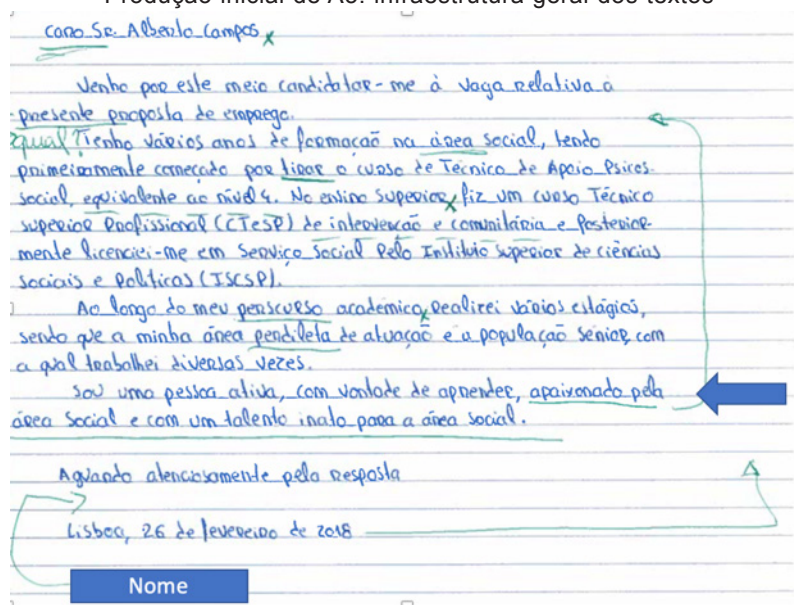 Caro Sr. Alberto Campos x
Venho por este meio candidatar-me à vaga relativa à
presente proposta de emprego.
qual? Tenho vários anos de formação na área social, tendo
primeiramente começado por tirar o curso de Técnico de Apoio Psicos-
social, equivalente ao nível 4. No ensino superior, fiz um curso Técnico
superior Profissional (CTesP) de intervenção e comunitária e Posterior-
mente licenciei-me em Serviço Social Pelo Instituto superior de ciências
sociais e Políticas (ISCSP).
Ao longo do meu perscurso academico, Realizei vários estágios,
sendo que a minha área perdileta de atuação e a população senior, com
a qual trabalhei diversas vezes.
Sou uma pessoa ativa, com vontade de aprender, apaixonado pela
área Social e com um talento inato para a área social.
Aguardo atenciosamente pela Resposta
Lisboa, 26 de fevereiro de 2018
Nome